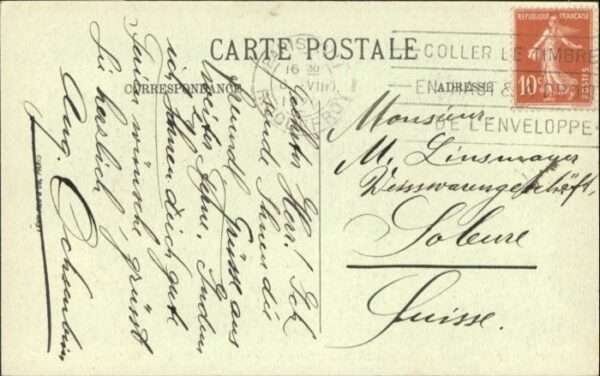 CARTE POSTALE
CORRESPONDANCE
ADRESSE
REPUBLIQUE FRANÇAISE
10c
POSTES
PARIS
16
COLLER LE TIMBRE
EN HAUT &
DE L'ENVELOPPE
Geehrter Herr! Ich
sende Ihnen die
freundl. Grüsse aus
weiter Ferne. Indem
ich Ihnen
wünsche grüsst
Sie herzlich
Aug. Ochsenbein
Monsieur
M. Linsmayer
Weisswarengeschäft,
Soleure
Suisse.